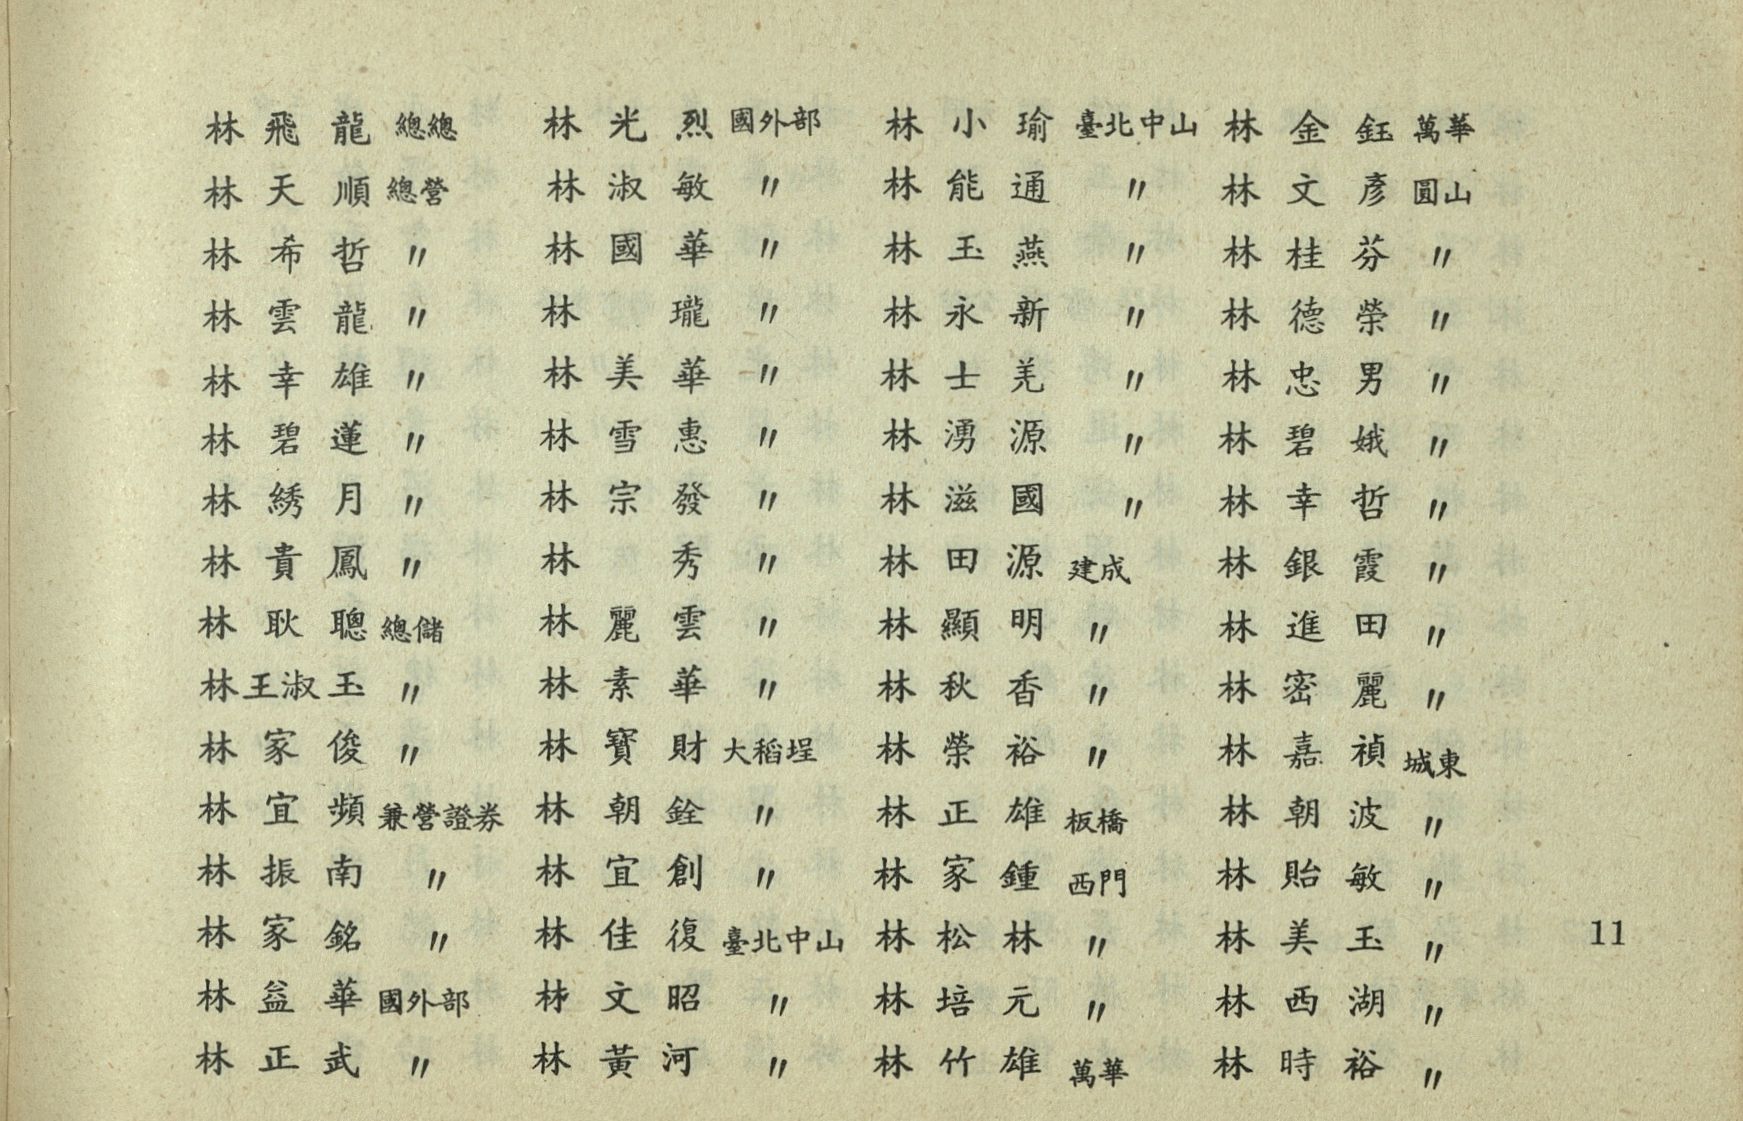 林飛龍 總總
林天順 總營
林希哲 〃
林雲龍 〃
林幸雄 〃
林碧蓮 〃
林綉月 〃
林貴鳳 〃
林耿聰 總儲
林王淑玉 〃
林家俊 〃
林宜頻 兼營證券
林振南 〃
林家銘 〃
林益華 國外部
林正武 〃
林光烈 國外部
林淑敏 〃
林國華 〃
林瓏 〃
林美華 〃
林雪惠 〃
林宗發 〃
林秀 〃
林麗雲 〃
林素華 〃
林寶財 大稻埕
林朝銓 〃
林宜創 〃
林佳復 臺北中山
林文昭 〃
林黃河 〃
林小瑜 臺北中山
林能通 〃
林玉燕 〃
林永新 〃
林士羌 〃
林湧源 〃
林滋國 〃
林田源 建成
林顯明 〃
林秋香 〃
林榮裕 〃
林正雄 板橋
林家鍾 西門
林松林 〃
林培元 〃
林竹雄 萬華
林金鈺 萬華
林文彥 圓山
林桂芬 〃
林德榮 〃
林忠男 〃
林碧娥 〃
林幸哲 〃
林銀霞 〃
林進田 〃
林密麗 〃
林嘉禎 城東
林朝波 〃
林貽敏 〃
林美玉 〃
林西湖 〃
林時裕 〃
11